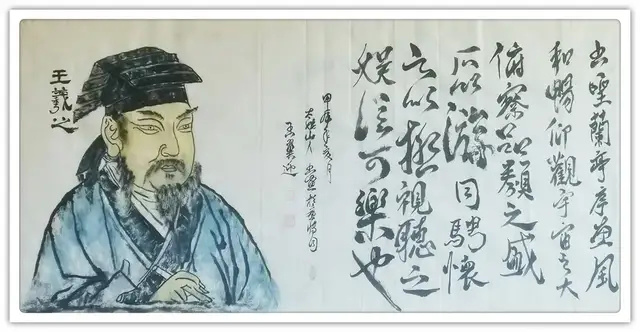 蘭亭序惠風
和暢仰觀宇宙之大
俯察品類之盛
所以遊目騁懷
足以極視聽之
娛信可樂也
甲辰年亥月
王羲之